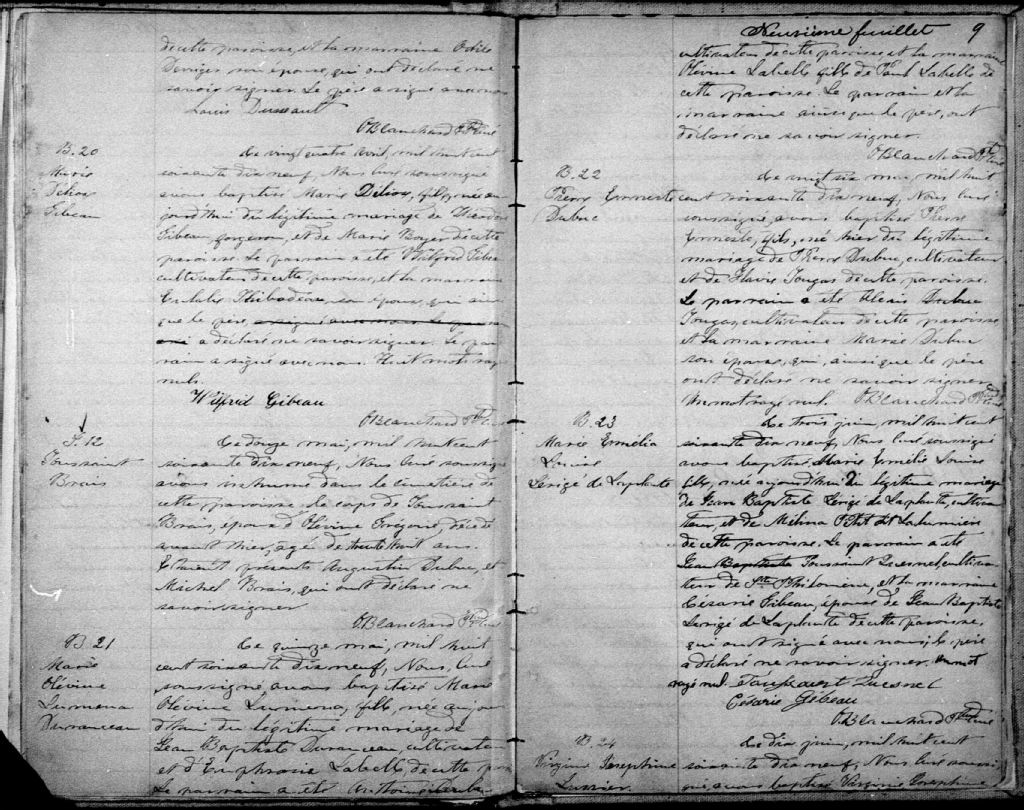 de cette paroisse, et la marraine Odile
son épouse, qui ont déclaré ne
savoir signer. Le père a signé avec nous
Louis Dussault
O Blanchard Ptre Curé
B. 20
Marie
Délior
Gibeau
Le vingt quatre avril, mil huit cent
soixante dix neuf, Nous Curé soussigné
avons baptisé Marie Délior, fille, née au
jourd'hui du légitime mariage de
Gibeau, forgeron, et de Marie Boyer de cette
paroisse. Le parrain a été Wilfrid Gibeau
cultivateur de cette paroisse, et la marraine
Eulalie Thibodeau, son épouse, qui ainsi
que le père, a signé avec nous
a déclaré ne savoir signer. Le par
rain a signé avec nous. Huit mots rayés
nuls.
Wilfrid Gibeau
O Blanchard Ptre Curé
S. 12
Toussaint
Brais
Le douze mai, mil huit cent
soixante dix neuf, Nous Curé soussigné
avons inhumé dans le cimetière de
cette paroisse, le corps de Toussaint
Brais, époux d'Olévine Grégoire, décédé
avant hier, âgé de trente huit ans.
Etaient présents Augustin Dubuc, et
Michel Brais, qui ont déclaré ne
savoir signer
O Blanchard Ptre Curé
B. 21
Marie
Olévine
Lumena
Duranceau
Le quinze mai, mil huit
cent soixante dix neuf, Nous, Curé
soussigné avons baptisé Marie
Olévine Lumena, fille, née aujour
d'hui du légitime mariage de
Jean Baptiste Duranceau, cultivateur
et d'Euphrosie Labelle de cette pa
Le parrain a été Antoine
Neuvième feuillet 9
cultivateur de cette paroisse et la marraine
Olévine Labelle fille de Paul Labelle de
cette paroisse. Le parrain et la
marraine ainsi que le père, ont
déclaré ne savoir signer.
O Blanchard Ptre Curé
B. 22
Pierre Ernneste
Dubuc
Le vingt six mai, mil huit
cent soixante dix neuf, Nous Curé
soussigné, avons baptisé Pierre
Ernneste, fils, né hier du légitime
mariage de Pierre Dubuc, cultivateur
et de Flavie Tougas de cette paroisse.
Le parrain a été Alexis Dubuc
Tougas, cultivateur de cette paroisse
et la marraine Marie Dubuc
son épouse, qui, ainsi que le père
ont déclaré ne savoir signer
Un mot rayé nul. O Blanchard Ptre Curé
B. 23
Marie Ermélia
Louise
Lerigé de Laplante
Le trois juin, mil huit cent
soixante dix neuf, Nous Curé soussigné
avons baptisé Marie Ermélie Louise
fille, née aujourd'hui du légitime mariage
de Jean Baptiste Lerigé de Laplante, cultiva
teur, et de Mélina Petit dit Lalumière
de cette paroisse. Le parrain a été
Jean Baptiste Toussaint Quesnel cultiva
teur de Ste Philomène, et la marraine
Césarie Gibeau, épouse de Jean Baptiste
Lerigé de Laplante de cette paroisse,
qui ont signé avec nous, le père
a déclaré ne savoir signer. Un mot
rayé nul. Toussaint Quesnel
Césarie Gébeau
O Blanchard Ptre Curé
B. 24
Virginie Josephine
Lussier.
Le dix juin, mil huit cent
soixante dix neuf, Nous Curé soussi
gné, avons baptisé Virginie Josephine